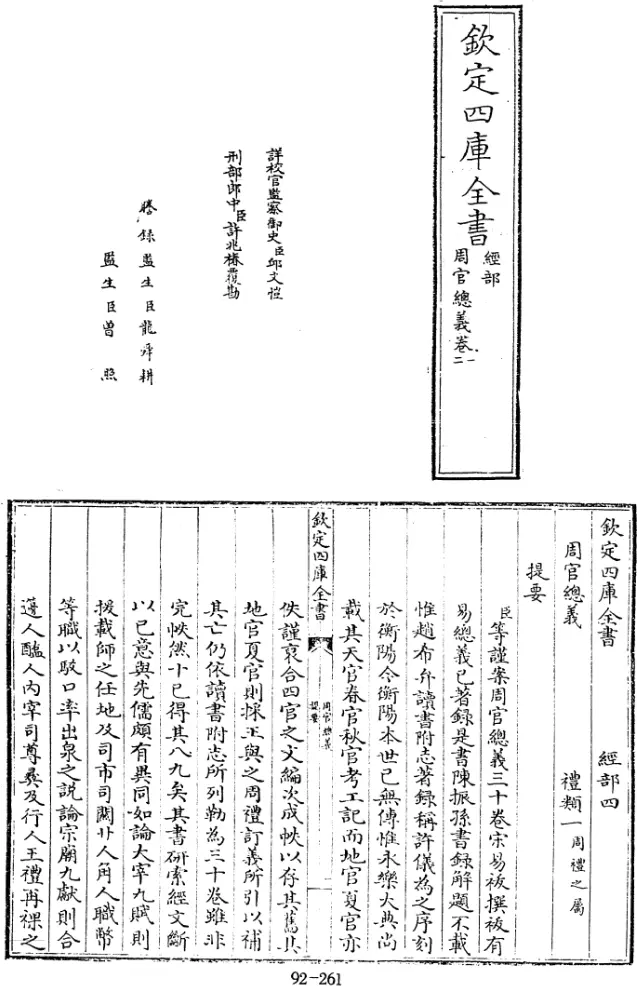 欽定四庫全書
經部
周官總義卷一
二
詳校官監察御史臣邱文愷
刑部郎中臣許兆椿覆勘
謄錄監生臣龍舜耕
監生臣曾照
欽定四庫全書 經部四
周官總義 禮類一周禮之屬
提要
臣等謹案周官總義三十卷宋易袚撰袚有
易總義已著錄是書陳振孫書錄解題不載
惟趙希弁讀書附志著錄稱許儀為之序刻
於衡陽今衡陽本世已無傳惟永樂大典尚
載其天官春官秋官考工記而地官夏官亦
欽定四庫全書
周官總義
提要
佚謹裒合四官之文編次成帙以存其舊其
地官夏官則採王與之周禮訂義所引以補
其亡仍依讀書附志所列勒為三十卷雖非
完帙然十已得其八九矣其書研索經文斷
以已意與先儒頗有異同如論大宰九賦則
援載師之任地及司市司關卝人角人職幣
等職以駁口率出泉之説論宗廟九獻則合
籩人醢人內宰司尊彝及行人王禮再祼之
92-261